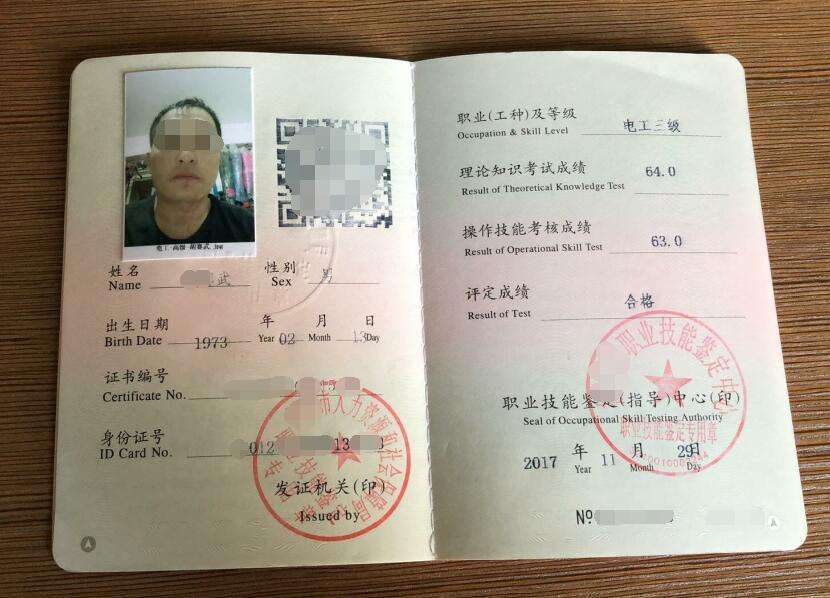 电工·高级 胡赛武.jpg
姓名
Name 武
性别
Sex 男
出生日期
Birth Date 1973 年 Year 02 月 Month 13 日 Day
证书编号
Certificate No.
身份证号
ID Card No. 012 13
市人力资源和社会保障局
发证机关(印)
Issued by
职业(工种)及等级
Occupation & Skill Level 电工三级
理论知识考试成绩
Result of Theoretical Knowledge Test 64.0
操作技能考核成绩
Result of Operational Skill Test 63.0
评定成绩
Result of Test 合格
职业技能鉴定中心
职业技能鉴定(指导)中心(印)
Seal of Occupational Skill Testing Authority
职业技能鉴定专用章
2017 年 Year 11 月 Month 29 日 Day
№